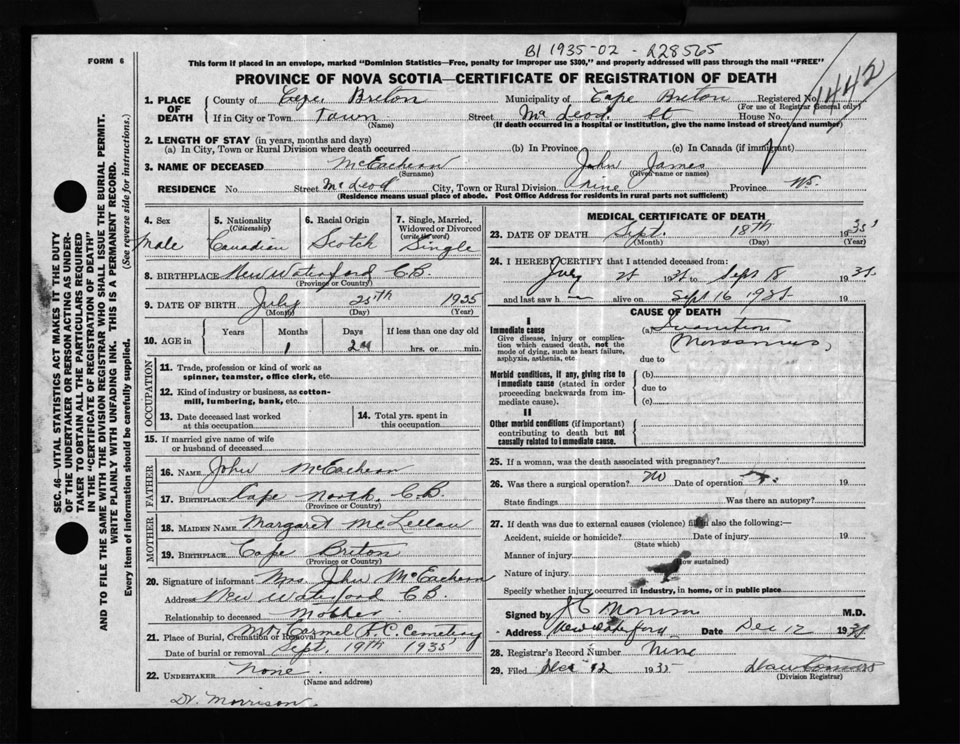 B1 1935-02 - 228565
FORM 6
This form if placed in an envelope, marked "Dominion Statistics—Free, penalty for improper use $300," and properly addressed will pass through the mail "FREE"
PROVINCE OF NOVA SCOTIA—CERTIFICATE OF REGISTRATION OF DEATH
1442
1. PLACE OF DEATH County of Cape Breton Municipality of Cape Breton Registered No.
(For use of Registrar General only)
If in City or Town Town Street McLeod St House No.
(Name) (If death occurred in a hospital or institution, give the name instead of street and number)
2. LENGTH OF STAY (in years, months and days)
(a) In City, Town or Rural Division where death occurred (b) In Province (c) In Canada (if immigrant)
3. NAME OF DECEASED McEachern John James
(Surname) (Given name or names)
RESIDENCE No. Street McLeod City, Town or Rural Division Province NS.
(Residence means usual place of abode. Post Office Address for residents in rural parts not sufficient)
4. Sex 5. Nationality (Citizenship) 6. Racial Origin 7. Single, Married, Widowed or Divorced (write the word)
Male Canadian Scotch Single
8. BIRTHPLACE New Waterford C.B.
(Province or Country)
9. DATE OF BIRTH July 25th 1935
(Month) (Day) (Year)
10. AGE in Years Months Days If less than one day old
1 24 hrs. or min.
OCCUPATION
11. Trade, profession or kind of work as spinner, teamster, office clerk, etc.
12. Kind of industry or business, as cotton-mill, lumbering, bank, etc.
13. Date deceased last worked at this occupation
14. Total yrs. spent in this occupation
15. If married give name of wife or husband of deceased
FATHER
16. NAME John McEachern
17. BIRTHPLACE Cape North, C.B.
(Province or Country)
MOTHER
18. MAIDEN NAME Margaret McLellan
19. BIRTHPLACE Cape Breton
(Province or Country)
20. Signature of informant Mrs. John McEachern
Address New Waterford C.B.
Relationship to deceased Mother
21. Place of Burial, Cremation or Removal Mt Carmel R.C. Cemetery
Date of burial or removal Sept. 19th 1935
22. UNDERTAKER None.
(Name and address)
Dr. Morrison.
MEDICAL CERTIFICATE OF DEATH
23. DATE OF DEATH Sept. 18th 1935
(Month) (Day) (Year)
24. I HEREBY CERTIFY that I attended deceased from:
July 25 1935 to Sept 18 1935
and last saw h alive on Sept 16 1935 19
CAUSE OF DEATH
I
Immediate cause
Give disease, injury or complication which caused death, not the mode of dying, such as heart failure, asphyxia, asthenia, etc
(a) Inanition
Marasmus
due to
Morbid conditions, if any, giving rise to immediate cause (stated in order proceeding backwards from immediate cause).
(b)
due to
(c)
II
Other morbid conditions (if important) contributing to death but not causally related to immediate cause.
25. If a woman, was the death associated with pregnancy?
26. Was there a surgical operation? No Date of operation 19
State findings Was there an autopsy?
27. If death was due to external causes (violence) fill in also the following:—
Accident, suicide or homicide? Date of injury 19
(State which)
Manner of injury
(How sustained)
Nature of injury
Specify whether injury occurred in industry, in home, or in public place
Signed by J C Morrison M.D.
Address New Waterford Date Dec 12 1935
28. Registrar's Record Number Nine
29. Filed Dec 12 1935
(Division Registrar)
SEC. 46—VITAL STATISTICS ACT MAKES IT THE DUTY
OF THE UNDERTAKER OR PERSON ACTING AS UNDER-
TAKER TO OBTAIN ALL THE PARTICULARS REQUIRED
IN THE "CERTIFICATE OF REGISTRATION OF DEATH"
AND TO FILE THE SAME WITH THE DIVISION REGISTRAR WHO SHALL ISSUE THE BURIAL PERMIT.
WRITE PLAINLY WITH UNFADING INK. THIS IS A PERMANENT RECORD.
Every item of information should be carefully supplied. (See reverse side for instructions.)